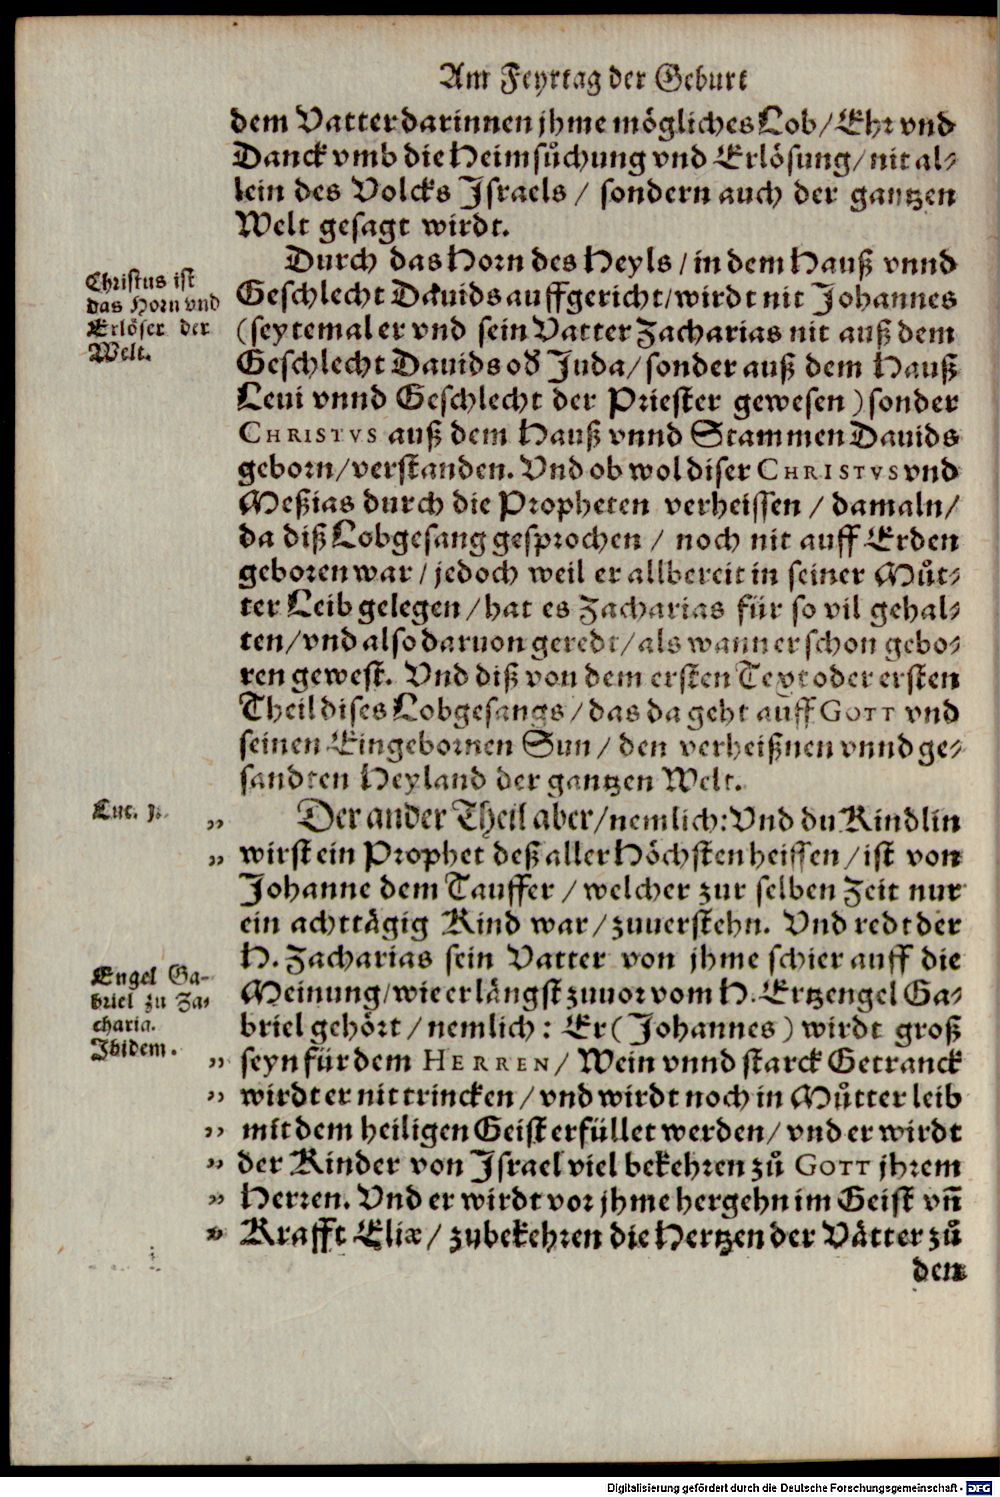 Am Feyrtag der Geburt
dem Vatter darinnen jhme mögliches Lob/ Ehr vnd
Danck vmb die Heimsůchung vnd Erlösung/ nit al-
lein des Volcks Israels / sondern auch der gantzen
Welt gesagt wirdt.
Durch das Horn des Heyls / in dem Hauß vnnd
Geschlecht Dauids auffgericht/ wirdt nit Johannes
(seytemal er vnd sein Vatter Zacharias nit auß dem
Geschlecht Dauids oď Juda/ sonder auß dem Hauß
Leui vnnd Geschlecht der Priester gewesen ) sonder
CHRISTVS auß dem Hauß vnnd Stammen Dauids
geborn/ verstanden. Vnd ob wol diser CHRISTVS vnd
Meßias durch die Propheten verheissen / damaln/
da diß Lobgesang gesprochen / noch nit auff Erden
geboren war / jedoch weil er allbereit in seiner Můt-
ter Leib gelegen / hat es Zacharias für so vil gehal-
ten/ vnd also daruon geredt/ als wann er schon gebo-
ren gewest. Vnd diß von dem ersten Text oder ersten
Theil dises Lobgesangs / das da geht auff GOTT vnd
seinen Eingebornen Sun / den verheißnen vnnd ge-
sandten Heyland der gantzen Welt.
Christus ist
das Horn vnd
Erlöser der
Welt.
Luc. 1.
„ Der ander Theil aber/ nemlich: Vnd du Kindlin
„ wirst ein Prophet deß aller Höchsten heissen / ist von
Johanne dem Tauffer / welcher zur selben Zeit nur
ein achttägig Kind war / zuuerstehn. Vnd redt der
H. Zacharias sein Vatter von jhme schier auff die
Meinung/ wie er längst zuuor vom H. Ertzengel Ga-
briel gehört / nemlich: Er ( Johannes ) wirdt groß
„ seyn für dem HERREN/ Wein vnnd starck Getranck
„ wirdt er nit trincken / vnd wirdt noch in Můtter leib
„ mit dem heiligen Geist erfüllet werden/ vnd er wirdt
„ der Kinder von Israel viel bekehren zů GOTT jhrem
„ Herren. Vnd er wirdt vor jhme hergehn im Geist vñ
„ Krafft Eliæ / zubekehren die Hertzen der Vätter zů
Engel Ga-
briel zu Za-
charia.
Ibidem.
den
Digitalisierung gefördert durch die Deutsche Forschungsgemeinschaft - DFG